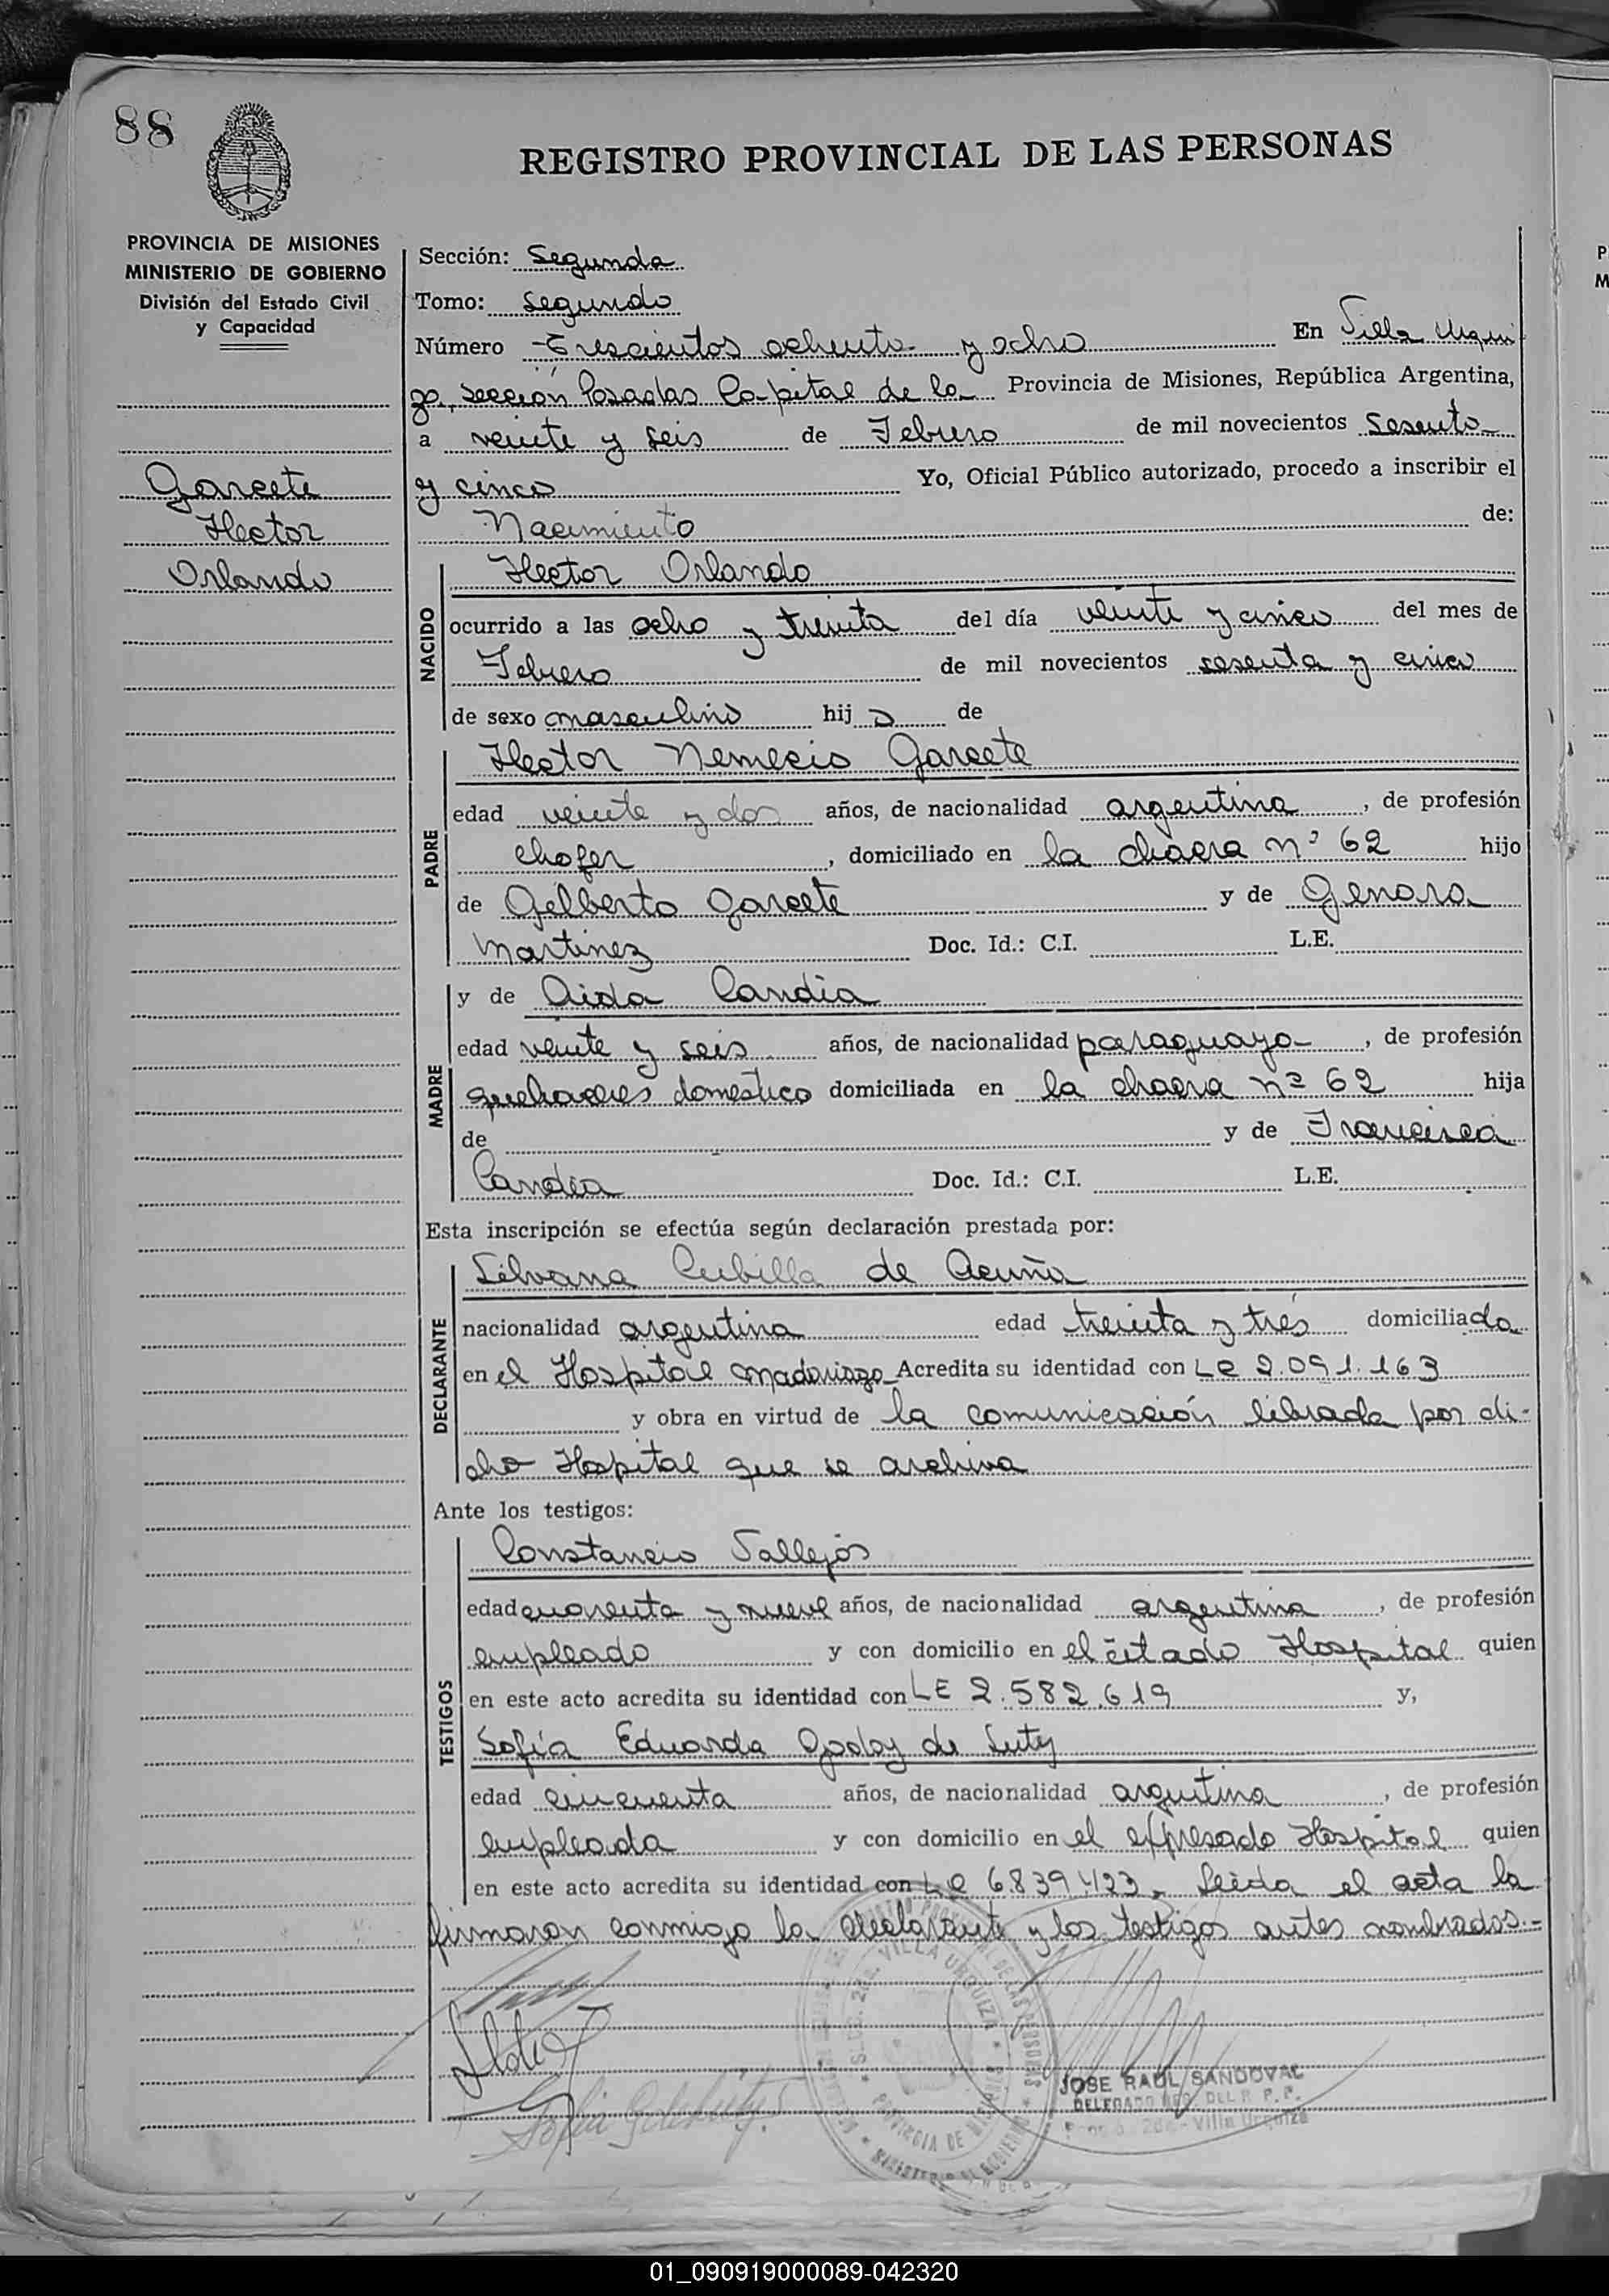 88
REGISTRO PROVINCIAL DE LAS PERSONAS
PROVINCIA DE MISIONES
MINISTERIO DE GOBIERNO
División del Estado Civil
y Capacidad
Garcete
Hector
Orlando
Sección: Segunda
Tomo: Segundo
Número Trescientos ochenta y ocho En Villa Urqui
za, sección Posadas Capital de la Provincia de Misiones, República Argentina,
a veinte y seis de Febrero de mil novecientos Sesenta
y cinco Yo, Oficial Público autorizado, procedo a inscribir el
Nacimiento de:
NACIDO
Hector Orlando
ocurrido a las ocho y treinta del día veinte y cinco del mes de
Febrero de mil novecientos sesenta y cinco
de sexo masculino hijo de
PADRE
Hector Nemecio Garcete
edad veinte y dos años, de nacionalidad argentina, de profesión
chofer, domiciliado en la chacra nº 62 hijo
de Gelberto Garcete y de Genara
Martinez Doc. Id.: C.I. L.E.
MADRE
y de Aida Candia
edad veinte y seis años, de nacionalidad paraguaya, de profesión
quehaceres domestico domiciliada en la chacra nº 62 hija
de y de Francisca
Candia Doc. Id.: C.I. L.E.
Esta inscripción se efectúa según declaración prestada por:
DECLARANTE
Silvana Cubilla de Acuña
nacionalidad argentina edad treinta y tres domiciliada
en el Hospital Madariaga Acredita su identidad con LC 2.091.163
y obra en virtud de la comunicación librada por di-
cho Hospital que se archiva
Ante los testigos:
TESTIGOS
Constancio Vallejos
edad cuarenta y nueve años, de nacionalidad argentina, de profesión
empleado y con domicilio en el citado Hospital quien
en este acto acredita su identidad con LE 2.582.619 y,
Sofía Eduarda Godoy de Luty
edad cincuenta años, de nacionalidad argentina, de profesión
empleada y con domicilio en el expresado Hospital quien
en este acto acredita su identidad con LC 6.839.423. Leida el acta la
firmaron conmigo la declarante y los testigos antes nombrados.-
JOSE RAUL SANDOVAL
VILLA URQUIZA
01_090919000089-042320